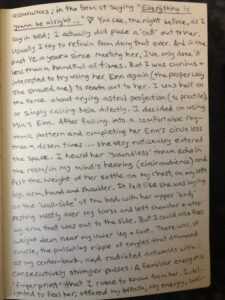 assurances, in the form of saying "Everything is
gonna be alright..." You see, the night before, as I
lay in bed, I actually did place a 'call' out to her.
Usually I try to refrain from doing that ever. And in the
past 1½ years since meeting her, I've only done it
less than a handful of times. But I was curious &
interested to try using her Enn again (the proper way
she showed me) to reach out to her. I was half on
the fence about trying astral projection (to practice)
or simply calling Mia directly. I decided on using
Mia's Enn. After falling into a comfortable rhy-
thmic pattern and completing her Enn's circle less
than a dozen times... she very noticeably entered
the space. I heard her 'soundless' thrum echo in
the room/in my mind's hearing (clairaudience) and
felt the weight of her settle on my chest, on my left
leg, arm, hand and shoulder. It felt like she was laying
on the 'wall-side' of the bed with her upper body
resting mostly over my torso and left shoulder & atop
my arm that was out to the side. But I could also feel
weight down near my lower leg & foot. There was, of
course, the pulsating ripple of tingles that thrummed
at my center-back, and radiated outwards with
consecutively stronger pulses. A familiar energetic
'fingerprint' that I come to know from her. I del-
ighted to feel her, offered my breath, my energy, wel-